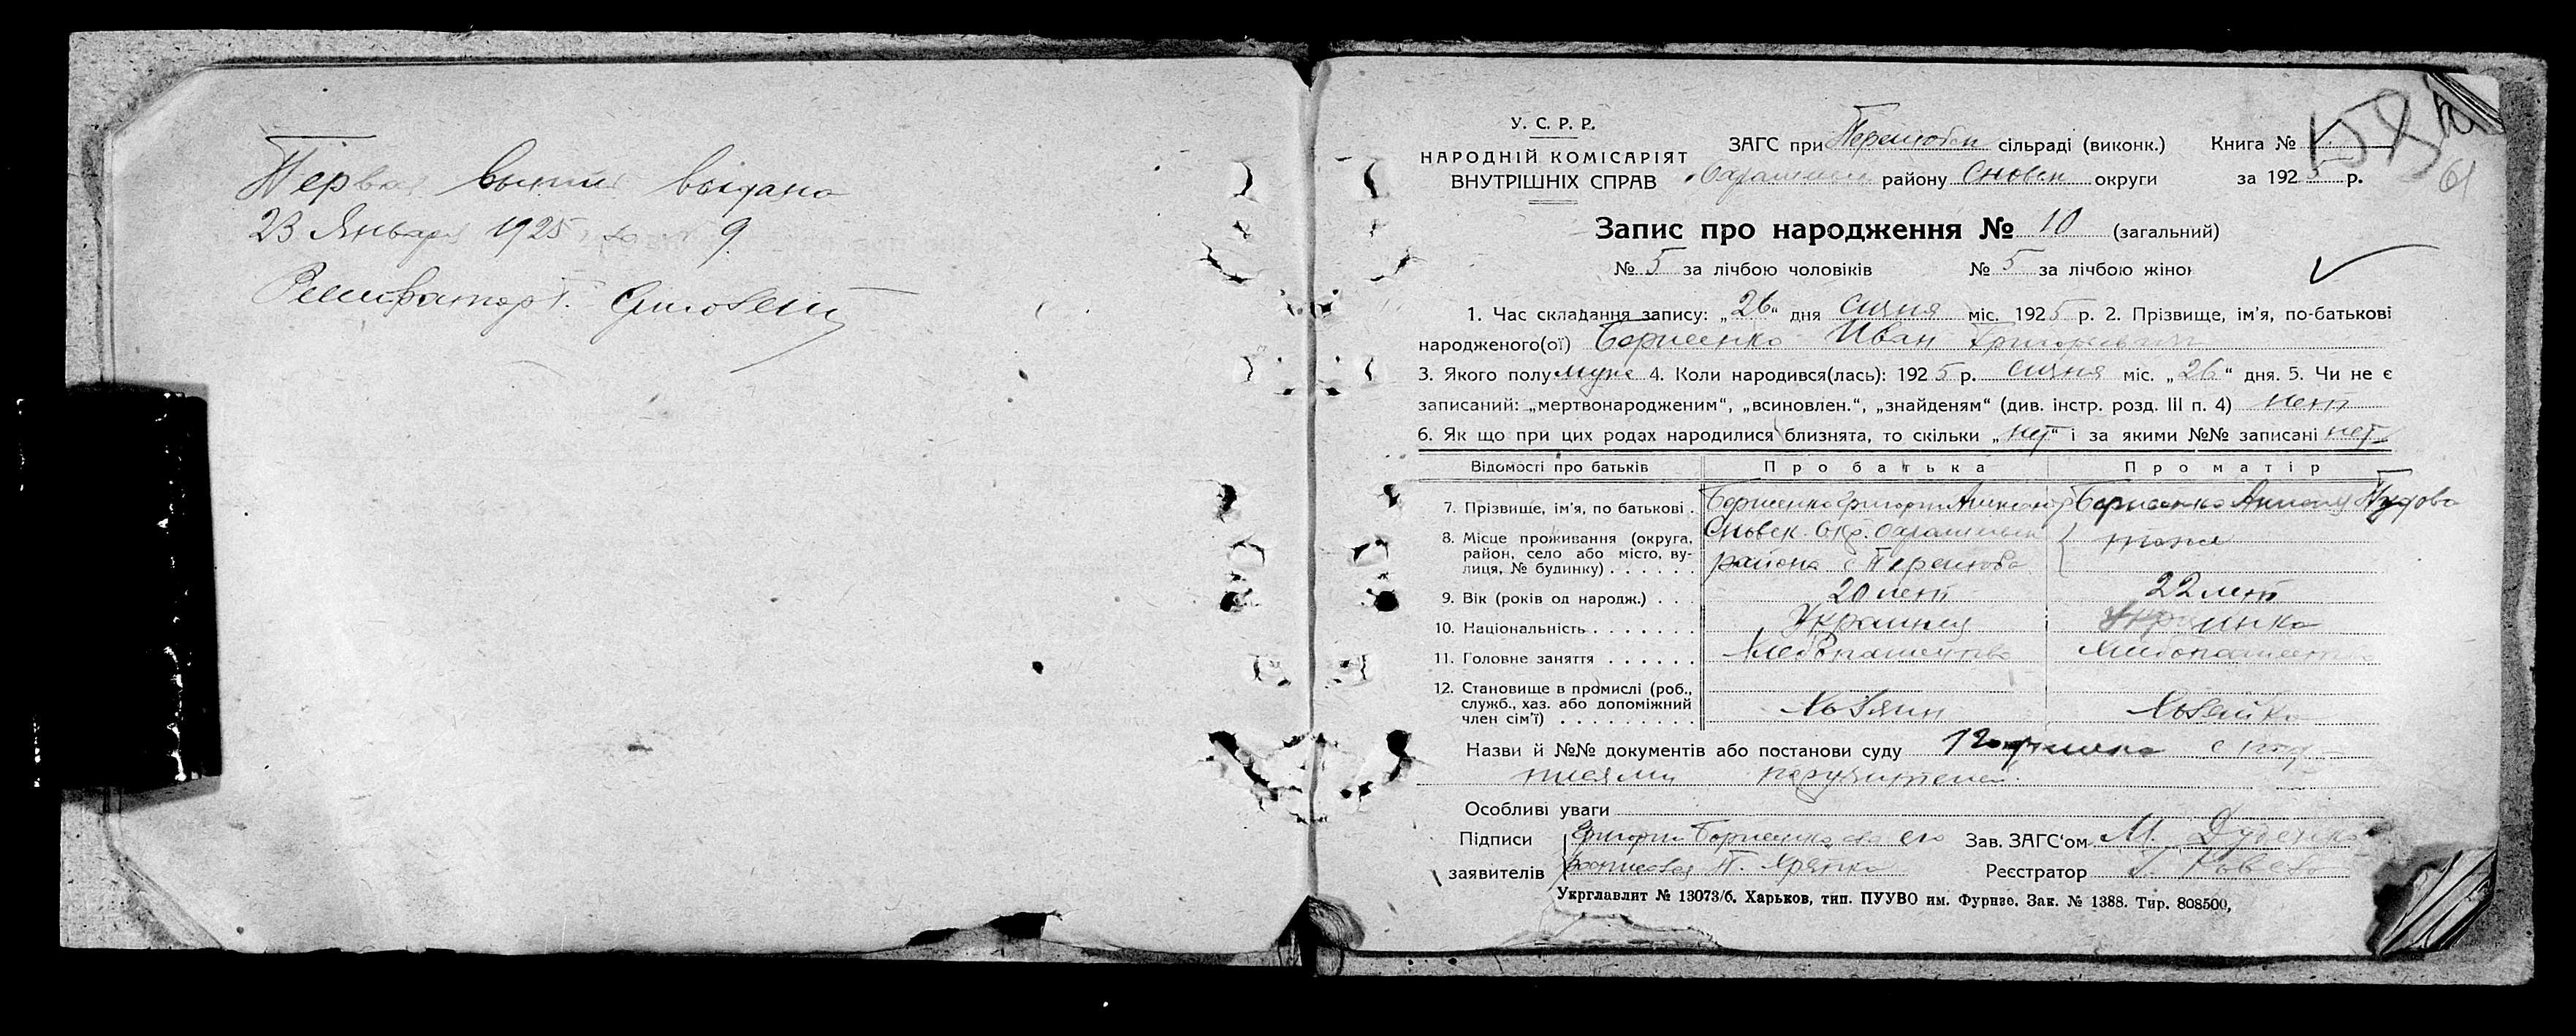 Первая выпись выдана
23 Января 1925 за № 9.
У. С. Р. Р.
НАРОДНІЙ КОМІСАРІЯТ
ВНУТРІШНІХ СПРАВ
ЗАГС при сільраді (виконк.) Книга №
району Сновск округи за 1925 р.
61
Запис про народження № 10 (загальний)
№ 5 за лічбою чоловіків № 5 за лічбою жінок
1. Час складання запису: „26" дня січня міс. 1925 р. 2. Прізвище, ім'я, по-батькові
народженого(ої) Борисенко Иван Григорьевич
3. Якого полу муж 4. Коли народився(лась): 1925 р. січня міс. „26" дня. 5. Чи не є
записаний: „мертвонародженим", „всиновлен.", „знайденям" (див. інстр. розд. III п. 4) нет
6. Як що при цих родах народилися близнята, то скільки „нет" і за якими №№ записані нет
Відомості про батьків Про батька Про матір
7. Прізвище, ім'я, по батькові . Борисенко Григори Борисенко
8. Місце проживання (округа, район, село або місто, вулиця, № будинку) . . . . . . Сновск. Окр. района с тоже
9. Вік (років од народж.) . . . 20 лет 22 лет
10. Національність . . . . . . . Украинец Укринка
11. Головне заняття . . . . . . Хлебопашество Хлебопашество
12. Становище в промислі (роб., служб., хаз. або допоміжний член сім'ї) . . . . . . . . .
Назви й №№ документів або постанови суду с под-
писями поручителей.
Особливі уваги
Підписи Григори Борисенко его Зав. ЗАГС'ом М. Дуденко
заявителів Реєстратор
Укрглавлит № 13073/б. Харьков, тип. ПУУВО им. Фрунзе. Зак. № 1388. Тир. 808500,